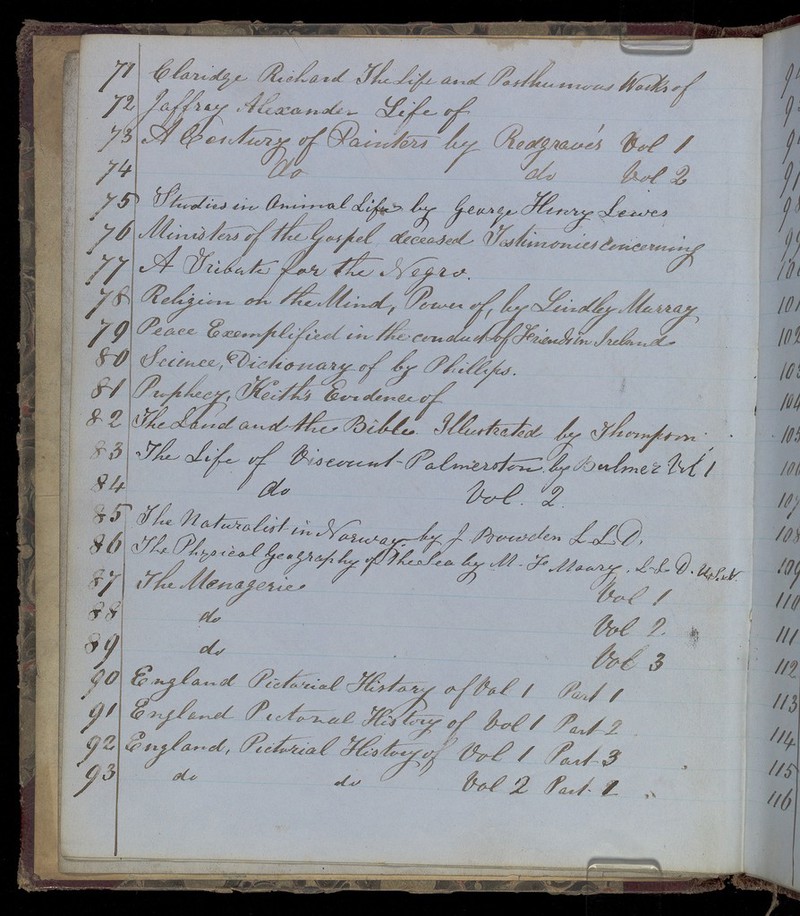 71 Claridge Richard The Life and Posthumous Works of
72 Jaffray Alexander Life of
73 A Century of Painters by Redgraves Vol 1
74 do do Vol 2
75 Studies in Animal Life by George Henry Lewes
76 Ministers of the Gospel, deceased Testimonies Concerning
77 A Tribute for the Negro.
78 Religion on the Mind, Power of, by Lindley Murray
79 Peace Exemplified in the conduct of Friends in Ireland
80 Science, Dictionary of by Phillips.
81 Prophecy, Keith's Evidence of
82 The Land and the Bible Illustrated by Thompson
83 The Life of Viscount Palmerston by Bulmer Vol 1
84 do Vol. 2.
85 The Naturalist in Norway by J Bowden L.L.D.
86 The Physical Geography of the Sea by M. F Maury. L.L.D. U.S.N.
87 The Menagerie Vol 1
88 do Vol 2
89 do Vol 3
90 England Pictorial History of Vol 1 Part 1
91 England Pictorial History of Vol 1 Part 2
92 England, Pictorial History of Vol 1 Part 3
93 do do Vol 2 Part 1
101
102
104
110
111
112
113
114
115
116